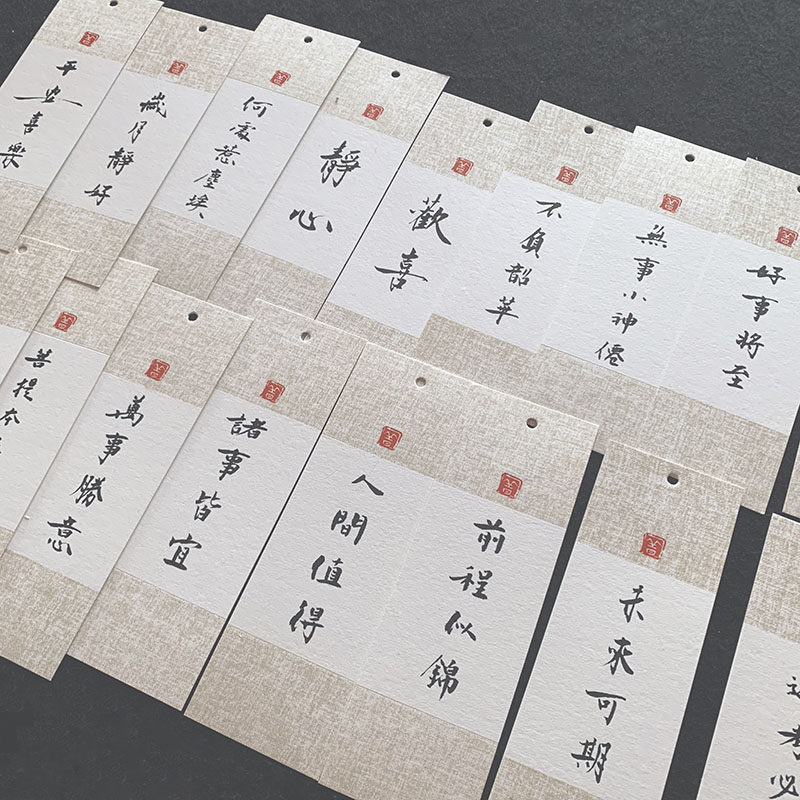 平安喜樂
歲月靜好
何處惹塵埃
靜心
歡喜
不負韶華
無事小神僊
好事將至
菩提本
萬事勝意
諸事皆宜
人間值得
前程似錦
未來可期
考必